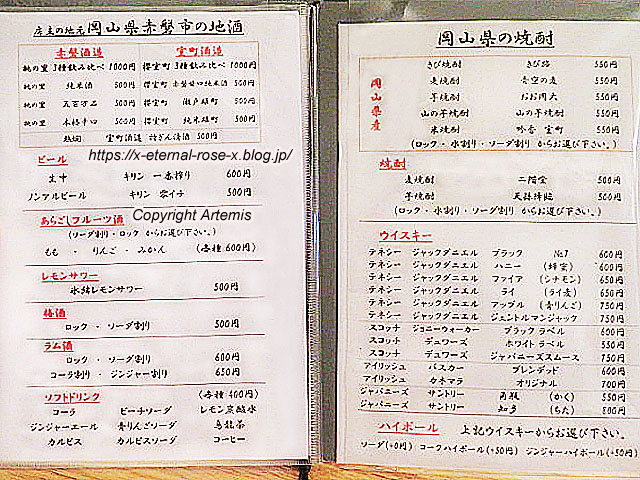 店主の地元 岡山県赤磐市の地酒
赤磐酒造 室町酒造
桃の里 3種飲み比べ 1000円 櫻室町 3種飲み比べ 1000円
桃の里 純米酒 500円 櫻室町 赤磐甘口純米酒 500円
桃の里 五百万石 500円 櫻室町 瀬戸雄町 500円
桃の里 本格辛口 500円 櫻室町 純米雄町 500円
熱燗 室町酒造 特ぎん清酒 500円
ビール
生中 キリン 一番搾り 600円
ノンアルビール キリン 零イチ 500円
https://x-eternal-rose-x.blog.jp/
Copyright Artemis
あらごしフルーツ酒
(ソーダ割り・ロック からお選び下さい。)
もも ・ りんご ・ みかん (各種 600円)
レモンサワー
氷結レモンサワー 500円
梅酒
ロック ・ ソーダ割り 500円
ラム酒
ロック ・ ソーダ割り 600円
コーラ割り ・ ジンジャー割り 650円
ソフトドリンク (各種 400円)
コーラ ピーチソーダ レモン炭酸水
ジンジャーエール 青りんごソーダ 烏龍茶
カルピス カルピスソーダ コーヒー
岡山県の焼酎
岡山県産
きび焼酎 きび 550円
麦焼酎 青空の麦 550円
芋焼酎 おお岡大 550円
山の芋焼酎 山の芋焼酎 550円
米焼酎 吟香 室町 550円
(ロック ・ 水割り ・ ソーダ割り からお選び下さい。)
焼酎
麦焼酎 二階堂 500円
芋焼酎 天孫降臨 500円
(ロック ・ 水割り ・ ソーダ割り からお選び下さい。)
ウイスキー
テネシー ジャックダニエル ブラック No.7 600円
テネシー ジャックダニエル ハニー (蜂蜜) 600円
テネシー ジャックダニエル ファイア (シナモン) 650円
テネシー ジャックダニエル ライ (ライ麦) 650円
テネシー ジャックダニエル アップル (青りんご) 750円
テネシー ジャックダニエル ジェントルマンジャック 750円
スコッチ ジョニーウォーカー ブラックラベル 600円
スコッチ デュワーズ ホワイトラベル 550円
スコッチ デュワーズ ジャパニーズスムース 750円
アイリッシュ バスカー ブレンデッド 600円
アイリッシュ カネマラ オリジナル 700円
ジャパニーズ サントリー 角瓶 (かく) 550円
ジャパニーズ サントリー 知多 (ちた) 800円
ハイボール 上記ウイスキーからお選び下さい。
ソーダ(+0円) コークハイボール(+50円) ジンジャーハイボール(+50円)